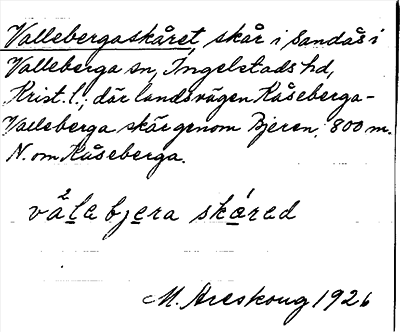 Vallebergaskåret, skår i sandås i
Valleberga sn, Ingelstads hd,
Krist. l.; där landsvägen Kåseberga-
Valleberga skär genom Bjeren, 800 m.
N. om Kåseberga.
vålebjera skåred
M. Areskoug 1926